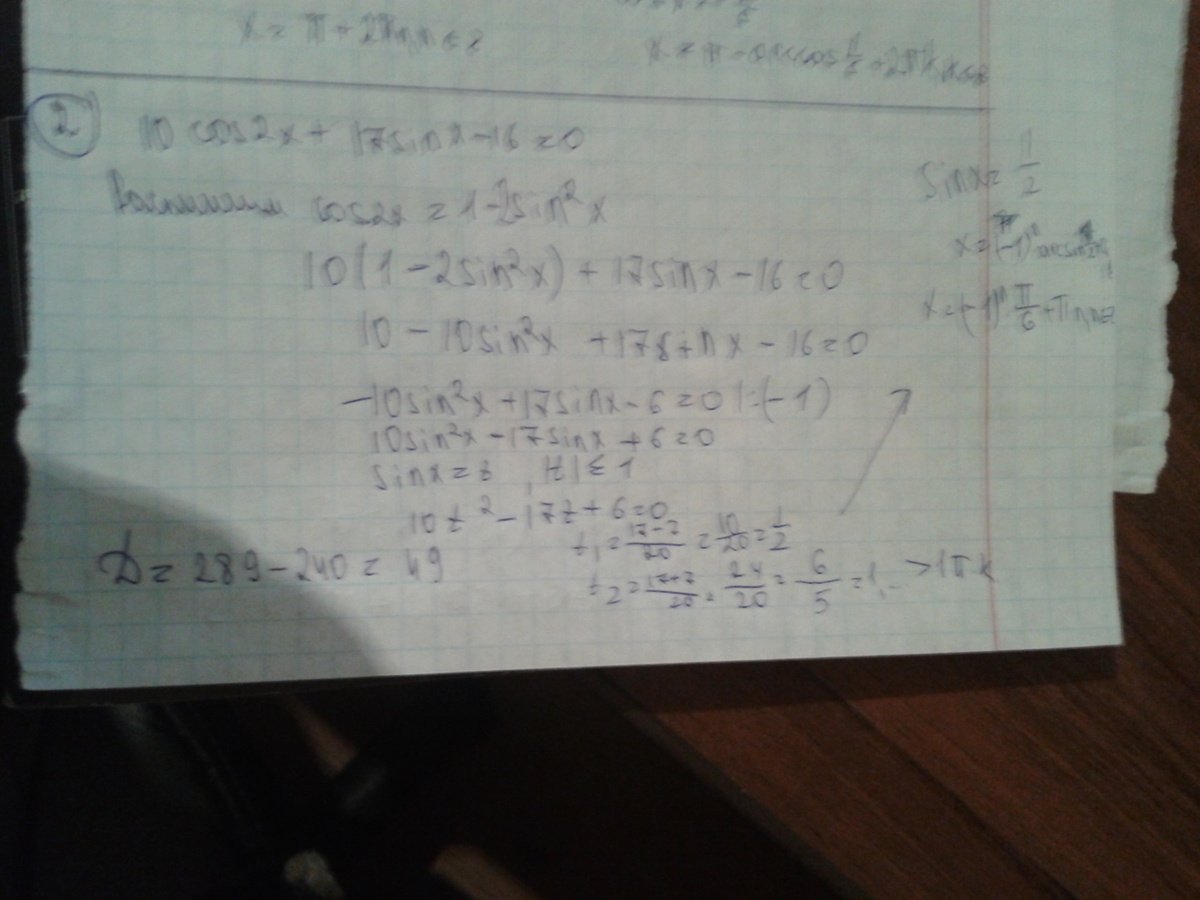 x = π + 2πn, n ∈ z
x = π - arccos 1/6 + 2πk, k ∈ z
2
10 cos2x + 17sinx - 16 = 0
Вспомним cos2x = 1 - 2sin²x
10(1 - 2sin²x) + 17sinx - 16 = 0
10 - 10sin²x + 17sinx - 16 = 0
-10sin²x + 17sinx - 6 = 0 | :(-1)
10sin²x - 17sinx + 6 = 0
sinx = t, |t| ≤ 1
10t² - 17t + 6 = 0
D = 289 - 240 = 49
t₁ = (17-7)/20 = 10/20 = 1/2
t₂ = (17+7)/20 = 24/20 = 6/5 = 1,.. > 1 п к
sinx = 1/2
x = (-1)ⁿ arcsin
x = (-1)ⁿ π/6 + πn, n∈z